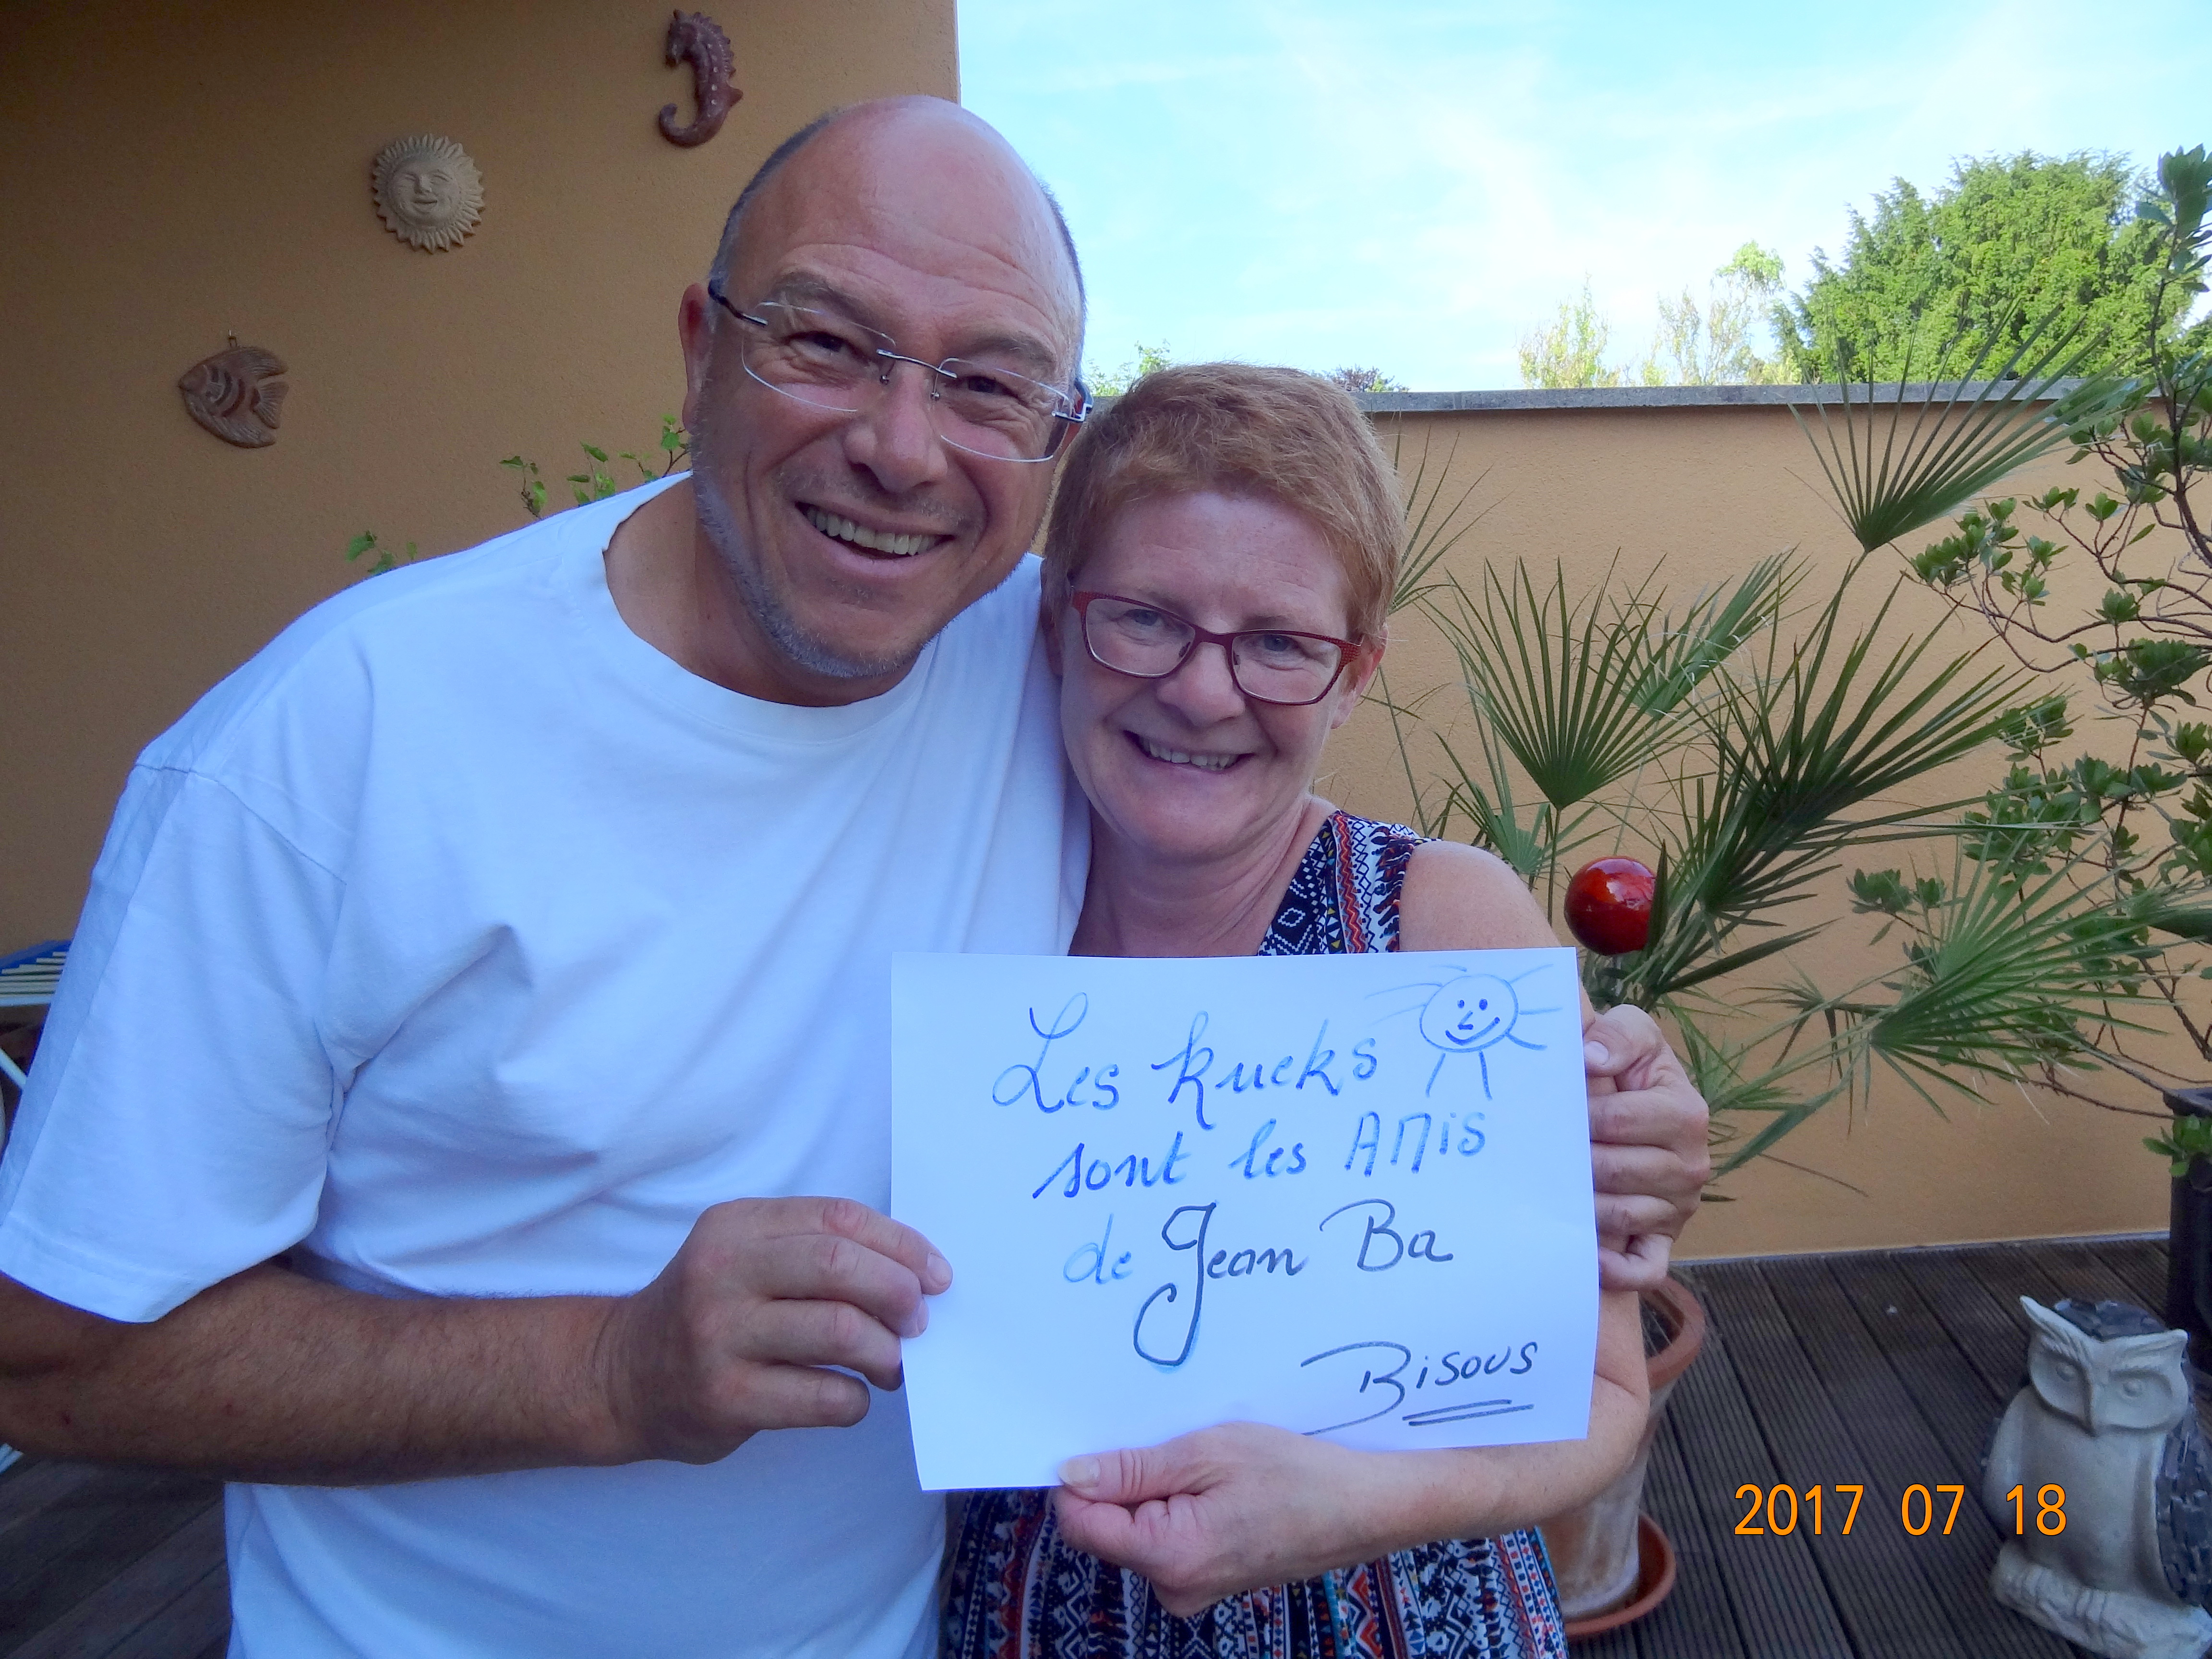 Les kueks
sont les AMis
de Jean Ba
Bisous
2017 07 18